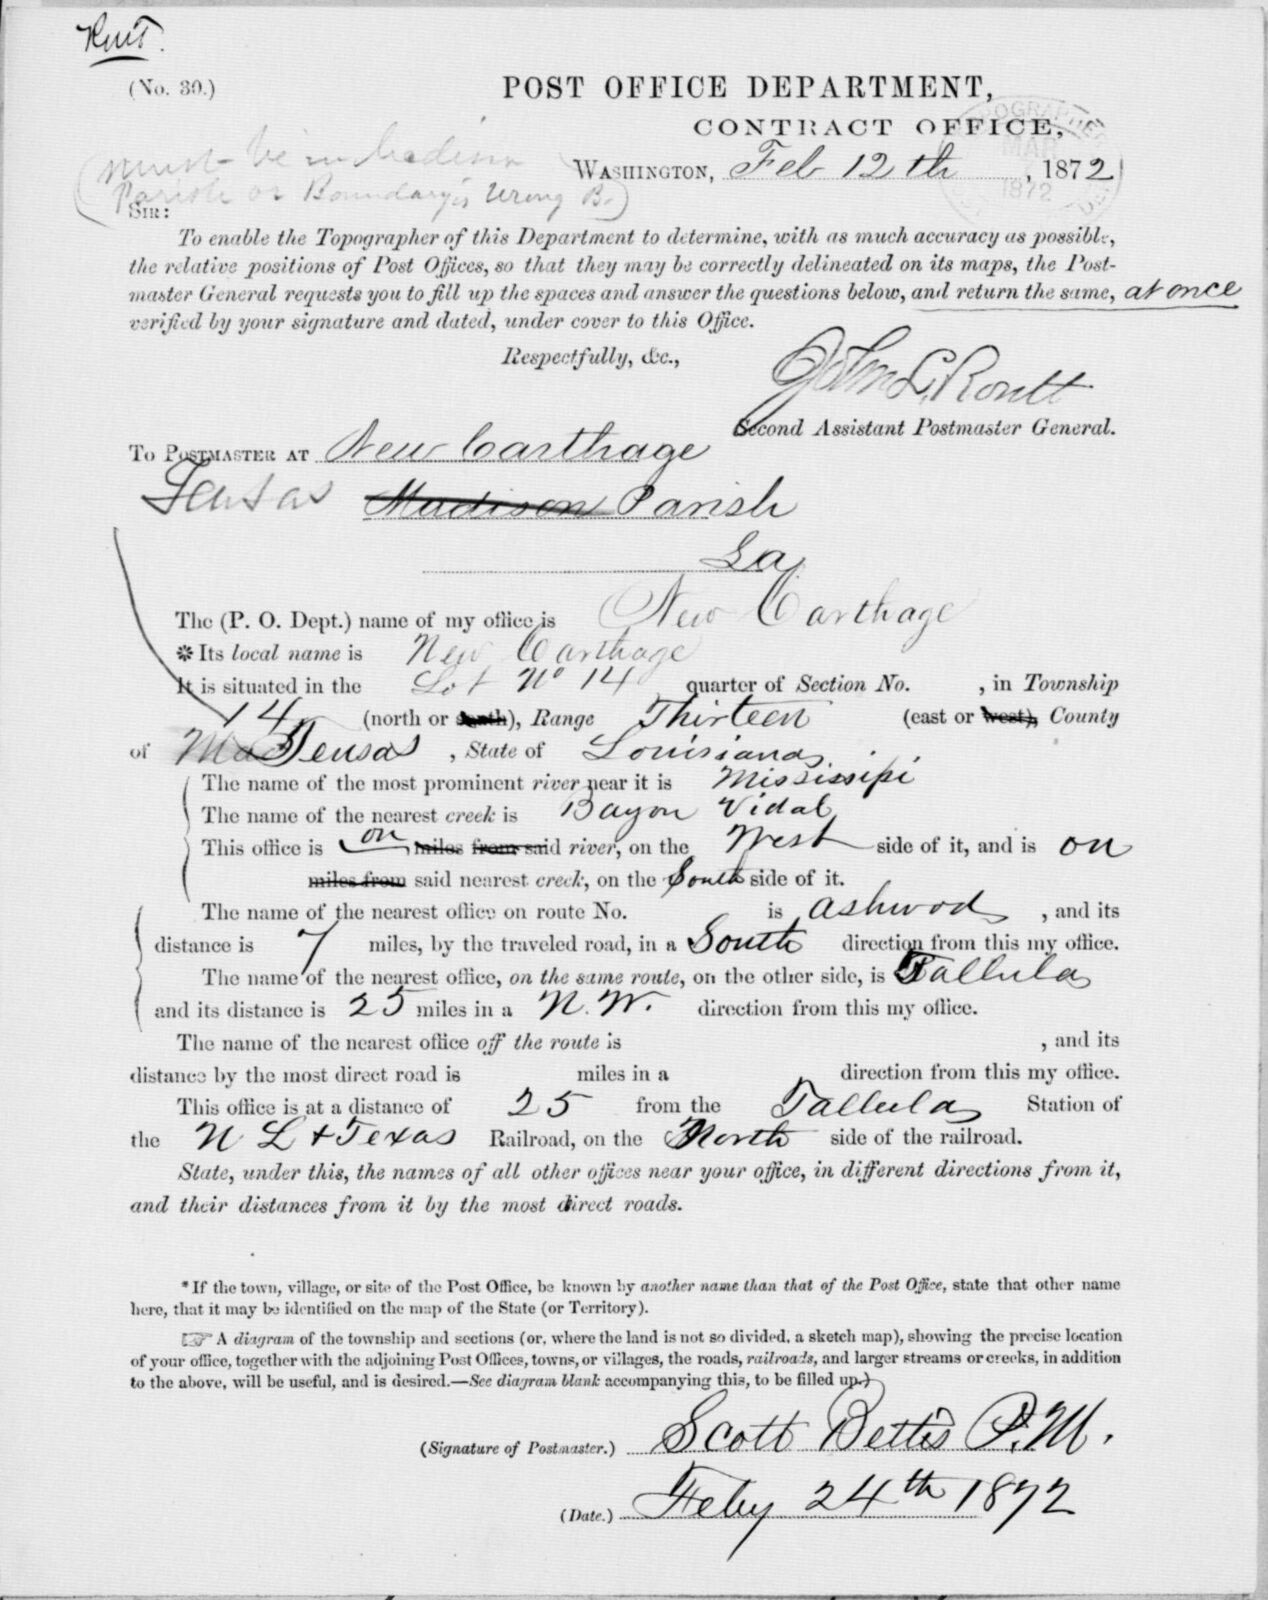 (No. 30.)
POST OFFICE DEPARTMENT,
CONTRACT OFFICE,
TOPOGRAPHER
MAR
1872
(must be in Madison
Parish or Boundary is wrong B.)
WASHINGTON, Feb 12th, 1872
SIR:
To enable the Topographer of this Department to determine, with as much accuracy as possible,
the relative positions of Post Offices, so that they may be correctly delineated on its maps, the Post-
master General requests you to fill up the spaces and answer the questions below, and return the same, at once
verified by your signature and dated, under cover to this Office.
Respectfully, &c.,
John L. Routt
Second Assistant Postmaster General.
TO POSTMASTER AT New Carthage
Tensas Madison Parish
La
The (P. O. Dept.) name of my office is New Carthage
*Its local name is New Carthage
It is situated in the Lot No 14 quarter of Section No. , in Township
14 (north or south), Range Thirteen (east or west), County
of Mad Tensas, State of Louisiana
The name of the most prominent river near it is Mississipi
The name of the nearest creek is Bayou Vidal
This office is on miles from said river, on the West side of it, and is on
miles from said nearest creek, on the South side of it.
The name of the nearest office on route No. is Ashwood, and its
distance is 7 miles, by the traveled road, in a South direction from this my office.
The name of the nearest office, on the same route, on the other side, is Tallula
and its distance is 25 miles in a N. W. direction from this my office.
The name of the nearest office off the route is , and its
distance by the most direct road is miles in a direction from this my office.
This office is at a distance of 25 from the Tallula Station of
the N L & Texas Railroad, on the North side of the railroad.
State, under this, the names of all other offices near your office, in different directions from it,
and their distances from it by the most direct roads.
*If the town, village, or site of the Post Office, be known by another name than that of the Post Office, state that other name
here, that it may be identified on the map of the State (or Territory).
☞ A diagram of the township and sections (or, where the land is not so divided, a sketch map), showing the precise location
of your office, together with the adjoining Post Offices, towns, or villages, the roads, railroads, and larger streams or creeks, in addition
to the above, will be useful, and is desired.—See diagram blank accompanying this, to be filled up.)
(Signature of Postmaster.) Scott Bettis P.M.
(Date.) Feby 24th 1872